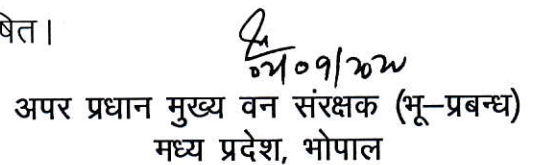 षित।
अपर प्रधान मुख्य वन संरक्षक (भू–प्रबन्ध)
मध्य प्रदेश, भोपाल